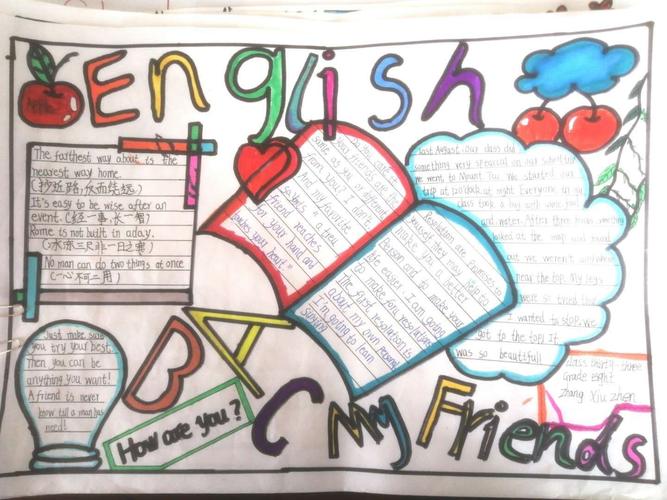 English
Apple
The farthest way about is the
nearest way home.
(抄近路,反而绕远)
It's easy to be wise after an
event. (经一事,长一智)
Rome is not built in a day.
(冰冻三尺非一日之寒)
No man can do two things at once
(一心不可二用)
same as you or different
from you? I don't
And my favorite
says "a true
friend reaches
for your hand and
touches your heart."
Resolutions are promises to
yourself they may help to
make you a better
Person and to make your
life easier. I am going
to make four resolutions
The first resolution is
about my own
I'm going to learn
Last August our class did
something very special on our school trip
we went to Mount Tai. We started our
trip at 12:00 o'clock at night Everyone in
class took a bag with some food
and water. After three hours
looked at the map and found
out we weren't anywhere
near the top. My legs
were so tired that
I wanted to stop. we
got to the top! It
was so beautiful!
Just make sure
you try your best.
Then you can be
anything you want!
A friend is never
know till a man has
need!
BAC
How are you?
My Friends
Class thirty-three
Grade eight
Zhang Xiu zhen